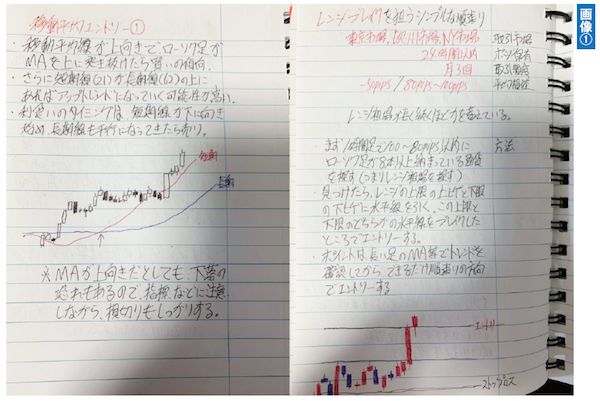 移動平均エントリー①
・移動平均線が上向きでローソク足が
MAを上に突き抜けたら買いの傾向。
・さらに短期線(21)が長期線(62)の上に
あればアップトレンドになっていく可能性が高い。
・利食いのタイミングは、短期線が下に向き
始め長期線も平行になってきたら売り。
短期
長期
※MAが上向きだとしても、下落の
恐れもあるので、指標などに注意
しながら、損切りもしっかりする。
レンジブレイクを狙うシンプルな順張り
東京市場、欧州市場、NY市場 取引市場
24時間以内
月3回
レンジ相場が長く続くほど力を蓄えている。
まず1時間足で60〜80pips以内に 方法
ローソク足が8本以上納まっている
を探す(つまりレンジ相場を探す)
・見つけたら、レンジの上限の上ヒゲと下限
の下ヒゲに水平線を引く、この上限と
下限のどちらかの水平線をブレイクした
ところでエントリーする。
・ポイントは長い足のMA等でトレンドを
確認してからできるだけ順張りの方向
でエントリーする
エントリー
ストップロス
画像①